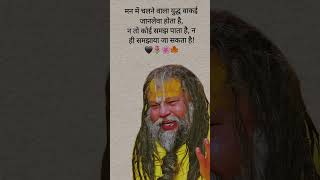 मन में चलने वाला युद्ध वाकई
जानलेवा होता है,
न तो कोई समझ पाता है, न
ही समझाया जा सकता है!
🖤🥀🌸🍁